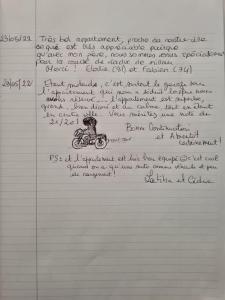 23/05/22 Très bel appartement, proche du centre-ville
ce qui est très appréciable puisque
qu'avec mon père, nous sommes venus spécialement
pour la course de
Merci ! Elodie (91) et Fabien (74)
28/05/22 Etant motarde, c'est surtout le garage sous
l'appartement qui nous a séduit lorsque nous
avons réservé... l'appartement est superbe,
grand, bien divisé et au calme tout en étant
en centre ville. Vous méritez une note de
20/20!
Bonne Continuation
et A bientôt
certainement!
PS: et l'appartement est très bien équipé c'est cool
quand on a qu'une moto comme véhicule et peu
de rangement!
Laetitia et Cédric